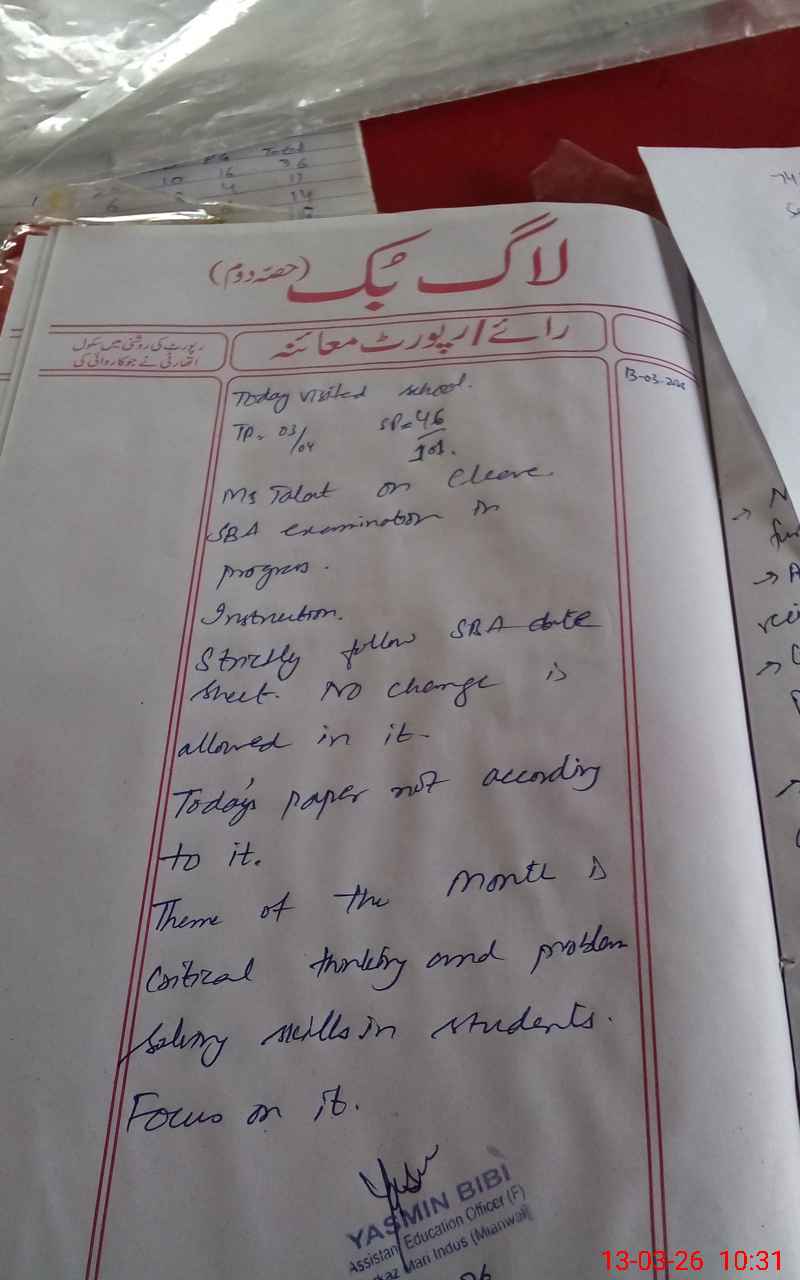 Total
16 36
10 4 13
6 14
لاگ بُک (حصّہ دوم)
رائے/رپورٹ معائنہ
رپورٹ کی روشنی میں سکول
اتھارٹی نے جو کارروائی کی
13-03-
Today visited school.
TP= 03/04 SP= 46/101.
Ms Talat on Cleave.
SBA examination in
progress.
Instruction.
Strictly follow SBA date
sheet. No change is
allowed in it.
Today's paper not according
to it.
Theme of the Month is
Critical thinking and problem
Solving skills in students.
Focus on it.
YASMIN BIBI
Assistant Education Officer (F)
Mari Indus (Mianwali)
13-03-26 10:31